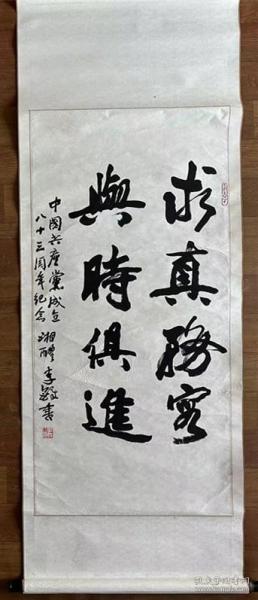 求真務實
與時俱進
中國共産黨成立
八十三周年纪念 湘醴 李毅書